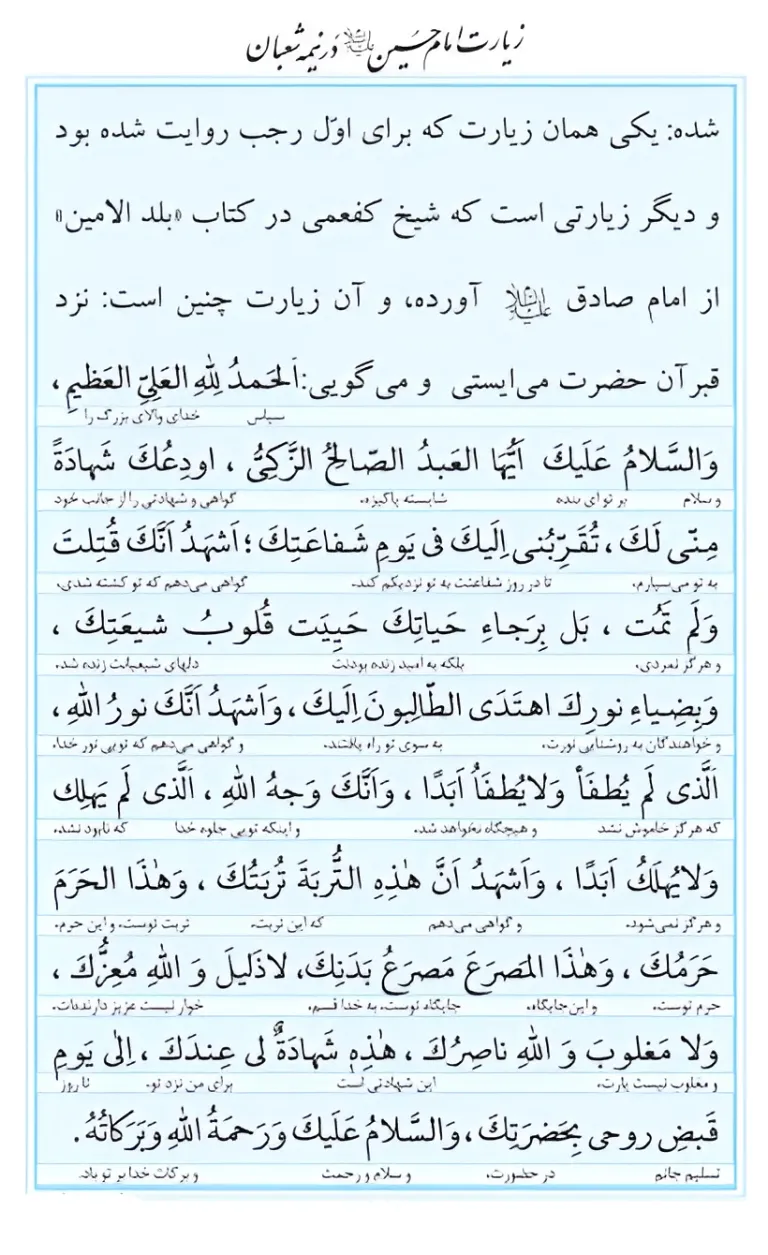 زیارت امام حسین علیه‌السلام در نیمه شعبان
شده: یکی همان زیارت که برای اوّل رجب روایت شده بود
و دیگر زیارتی است که شیخ کفعمی در کتاب «بلد الامین»
از امام صادق علیه‌السلام آورده، و آن زیارت چنین است: نزد
قبر آن حضرت می‌ایستی و می‌گویی: اَلحَمدُ لِلّٰهِ العَلِیِّ العَظیمِ ،
سپاس خدای والای بزرگ را
وَالسَّلامُ عَلَیكَ اَیُّهَا العَبدُ الصّالِحُ الزَّکِیُّ ، اودِعُكَ شَهادَةً
و سلام بر تو ای بنده شایسته پاکیزه، گواهی و شهادتی را از جانب خود
مِنّی لَكَ ، تُقَرِّبُنی اِلَیكَ فی یَومِ شَفاعَتِكَ ؛ اَشهَدُ اَنَّكَ قُتِلتَ
به تو می‌سپارم، تا در روز شفاعتت به تو نزدیکم کند. گواهی می‌دهم که تو کشته شدی،
وَلَم تَمُت ، بَل بِرَجاءِ حَیاتِكَ حَیِیَت قُلوبُ شیعَتِكَ ،
و هرگز نمردی، بلکه به امید زنده بودنت دلهای شیعیانت زنده شد.
وَبِضِیاءِ نورِكَ اهتَدَی الطّالِبونَ اِلَیكَ ، وَاَشهَدُ اَنَّكَ نورُ اللّٰهِ ،
و خواهندگان به روشنایی نورت، به سوی تو راه یافتند، و گواهی می‌دهم که تویی نور خدا،
الَّذی لَم یُطفَأ وَلایُطفَأُ اَبَدًا ، وَاَنَّكَ وَجهُ اللّٰهِ ، الَّذی لَم یَهلِك
که هرگز خاموش نشد و هیچگاه نخواهد شد، و اینکه تویی جلوه خدا که نابود نشد،
وَلایُهلَكُ اَبَدًا ، وَاَشهَدُ اَنَّ هٰذِهِ التُّربَةَ تُربَتُكَ ، وَهٰذَا الحَرَمَ
و هرگز نمی‌شود، و گواهی می‌دهم که این تربت، تربت توست، و این حرم،
حَرَمُكَ ، وَهٰذَا المَصرَعَ مَصرَعُ بَدَنِكَ، لاذَلیلَ وَ اللّٰهِ مُعِزُّكَ ،
حرم توست، و این جایگاه، جایگاه توست، به خدا قسم، خوار نیست عزیز دارنده‌ات،
وَلا مَغلوبَ وَ اللّٰهِ ناصِرُكَ ، هٰذِهِ شَهادَةٌ لی عِندَكَ ، اِلٰی یَومِ
و مغلوب نیست یارت، این شهادتی است برای من نزد تو، تا روز
قَبضِ روحی بِحَضرَتِكَ ، وَالسَّلامُ عَلَیكَ وَرَحمَةُ اللّٰهِ وَبَرَکاتُهُ .
تسلیم جانم در حضورت، و سلام و رحمت و برکات خدا بر تو باد.